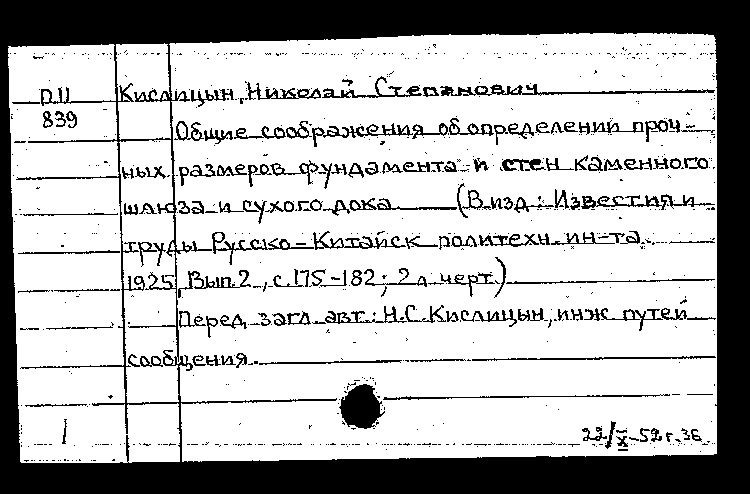 П11 Кислицын, Николай Степанович
839
Общие соображения об определении проч-
ных размеров фундамента и стен каменного
шлюза и сухого дока (В изд.: Известия и
труды Русско-Китайск политехн. ин-та.
1925, Вып. 2, с. 175-182; 2 л черт.)
Перед загл. авт.: Н.С. Кислицын, инж путей
сообщения.
22/X-52 г. 36